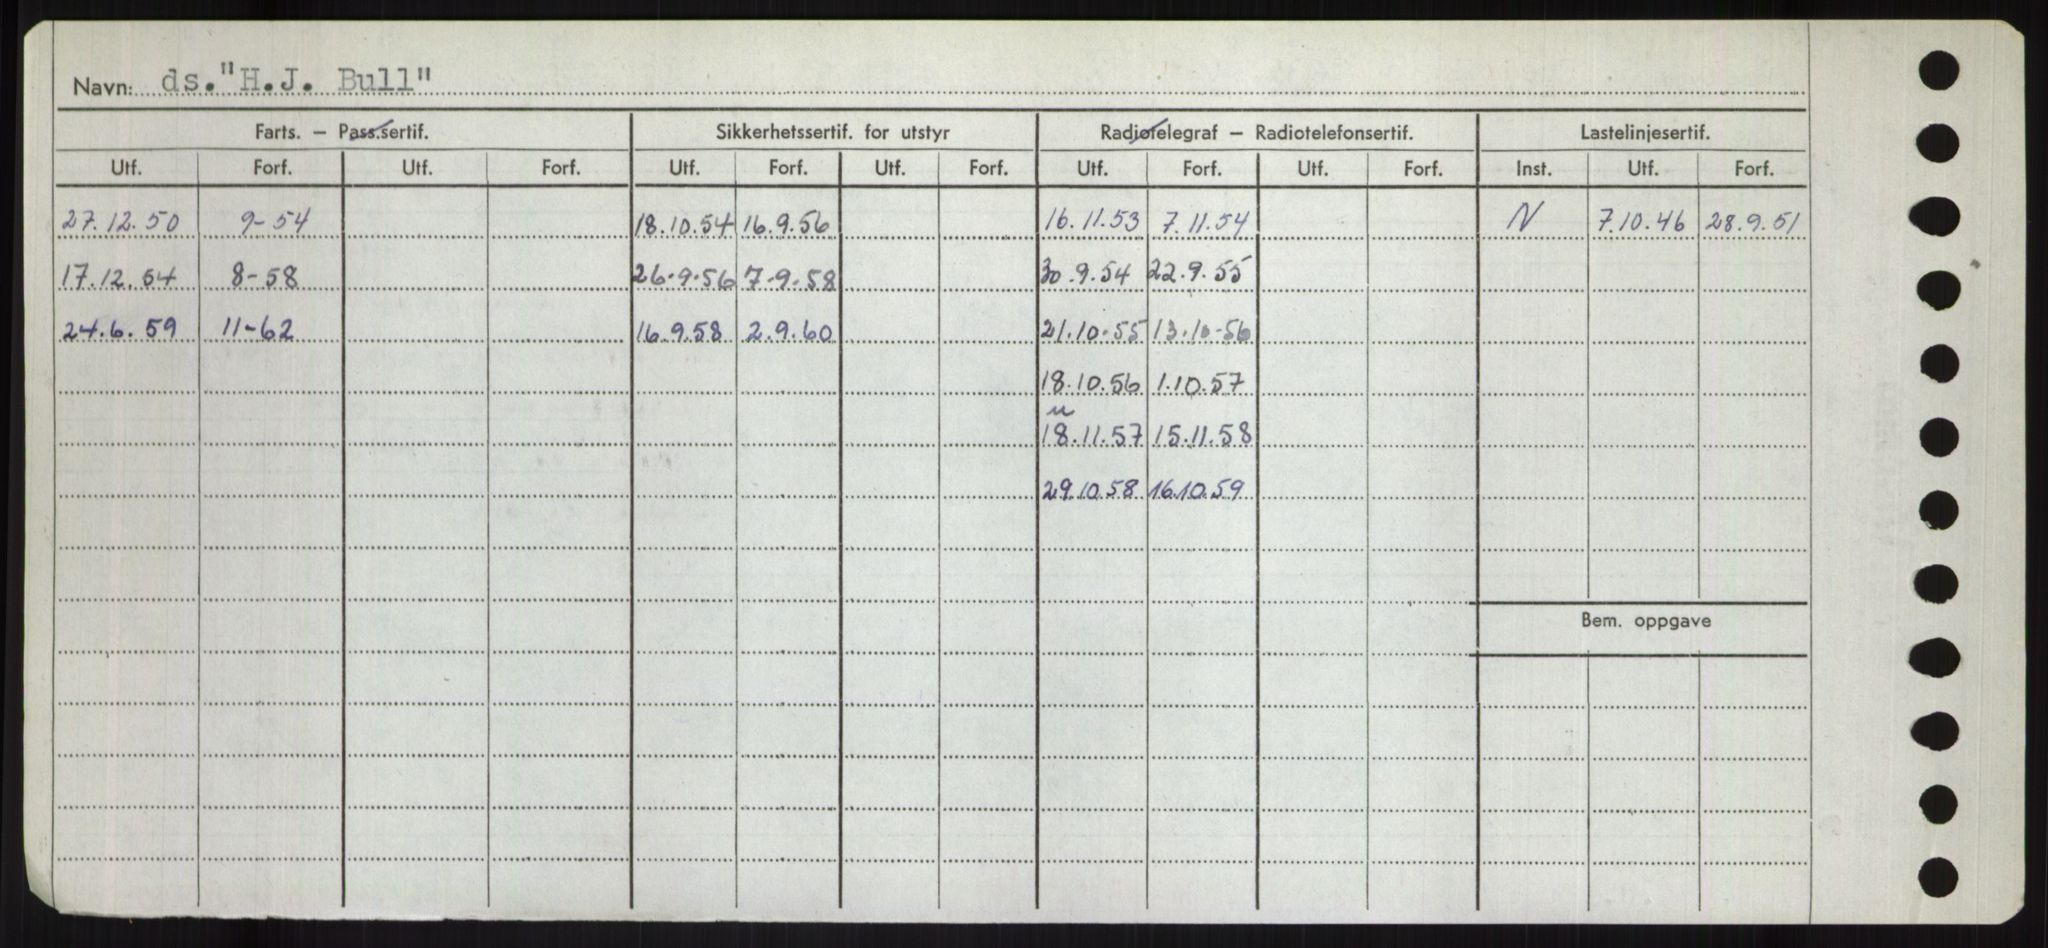 Navn: ds."H.J. Bull"
Farts. – Pass.sertif. Sikkerhetssertif. for utstyr Radiotelegraf – Radiotelefonsertif. Lastelinjesertif.
Utf. Forf. Utf. Forf. Utf. Forf. Utf. Forf. Utf. Forf. Utf. Forf. Inst. Utf. Forf.
27.12.50 9-54 18.10.54 16.9.56 16.11.53 7.11.54 N 7.10.46 28.9.51
17.12.54 8-58 26.9.56 7.9.58 30.9.54 22.9.55
24.6.59 11-62 16.9.58 2.9.60 21.10.55 13.10-56
18.10.56 1.10.57
18.11.57 15.11.58
29.10.58 16.10.59
Bem. oppgave